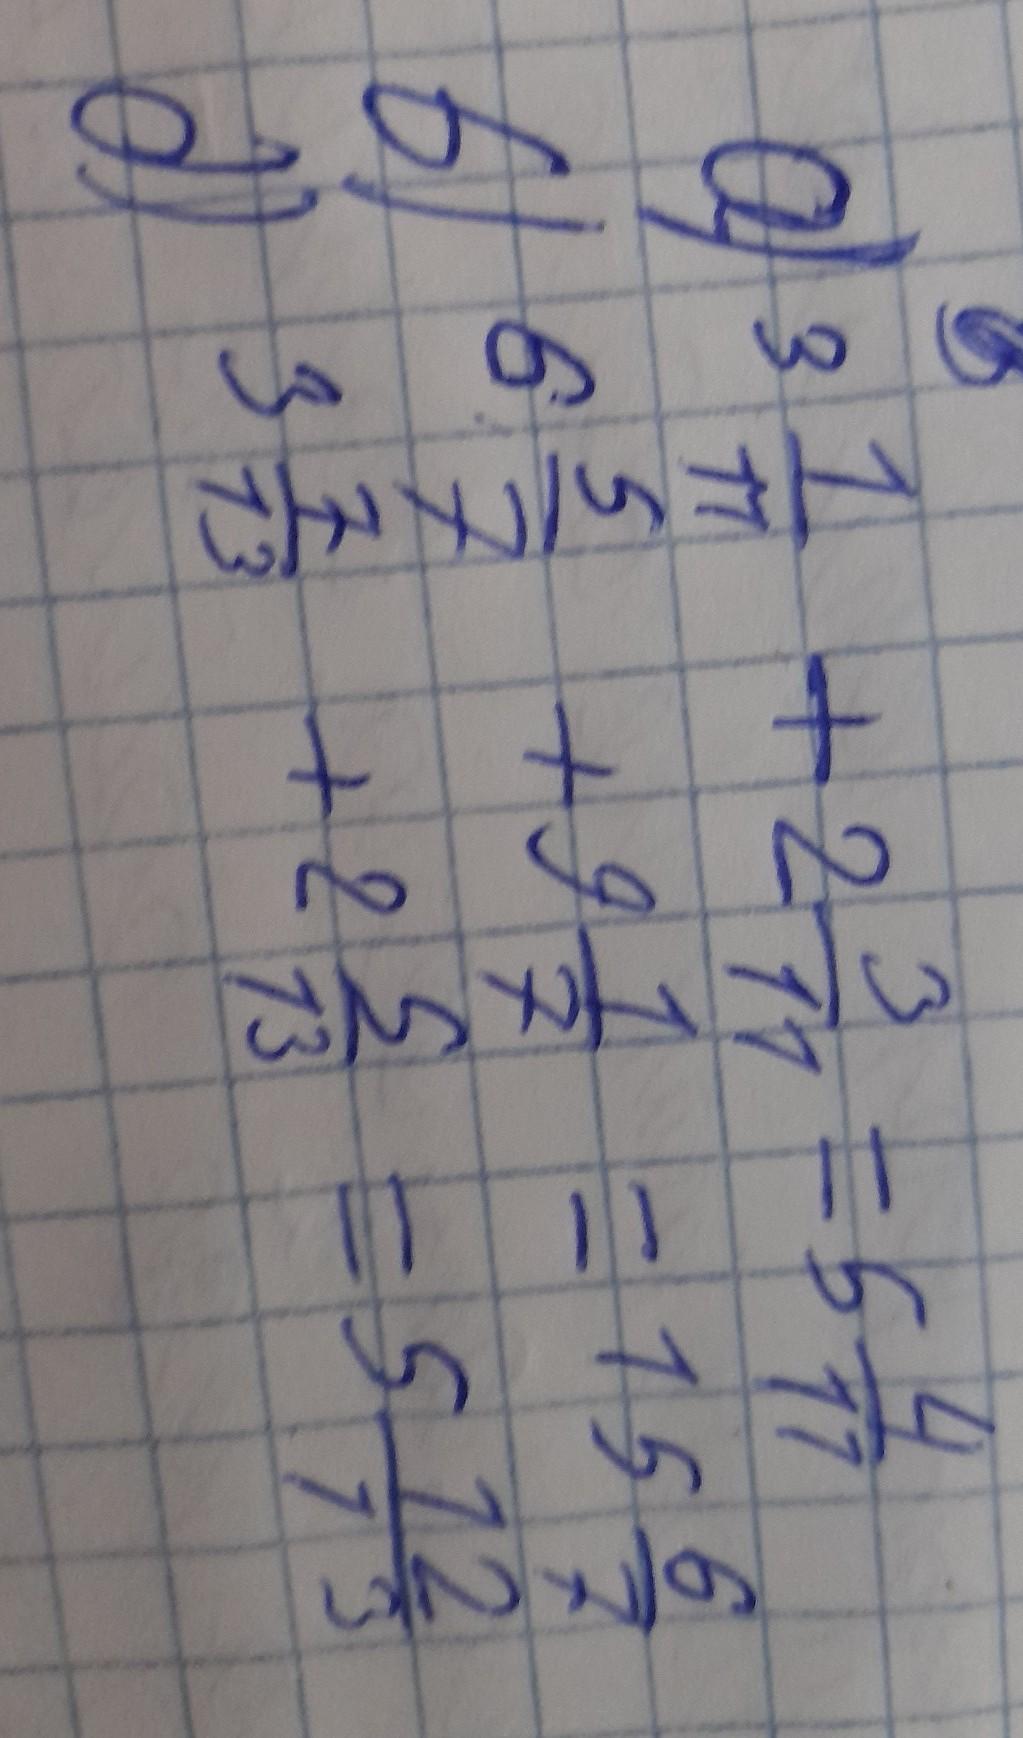 а) 3 1/11 + 2 3/11 = 5 4/11
б) 6 5/7 + 9 1/7 = 15 6/7
д) 3 7/13 + 2 5/13 = 5 12/13